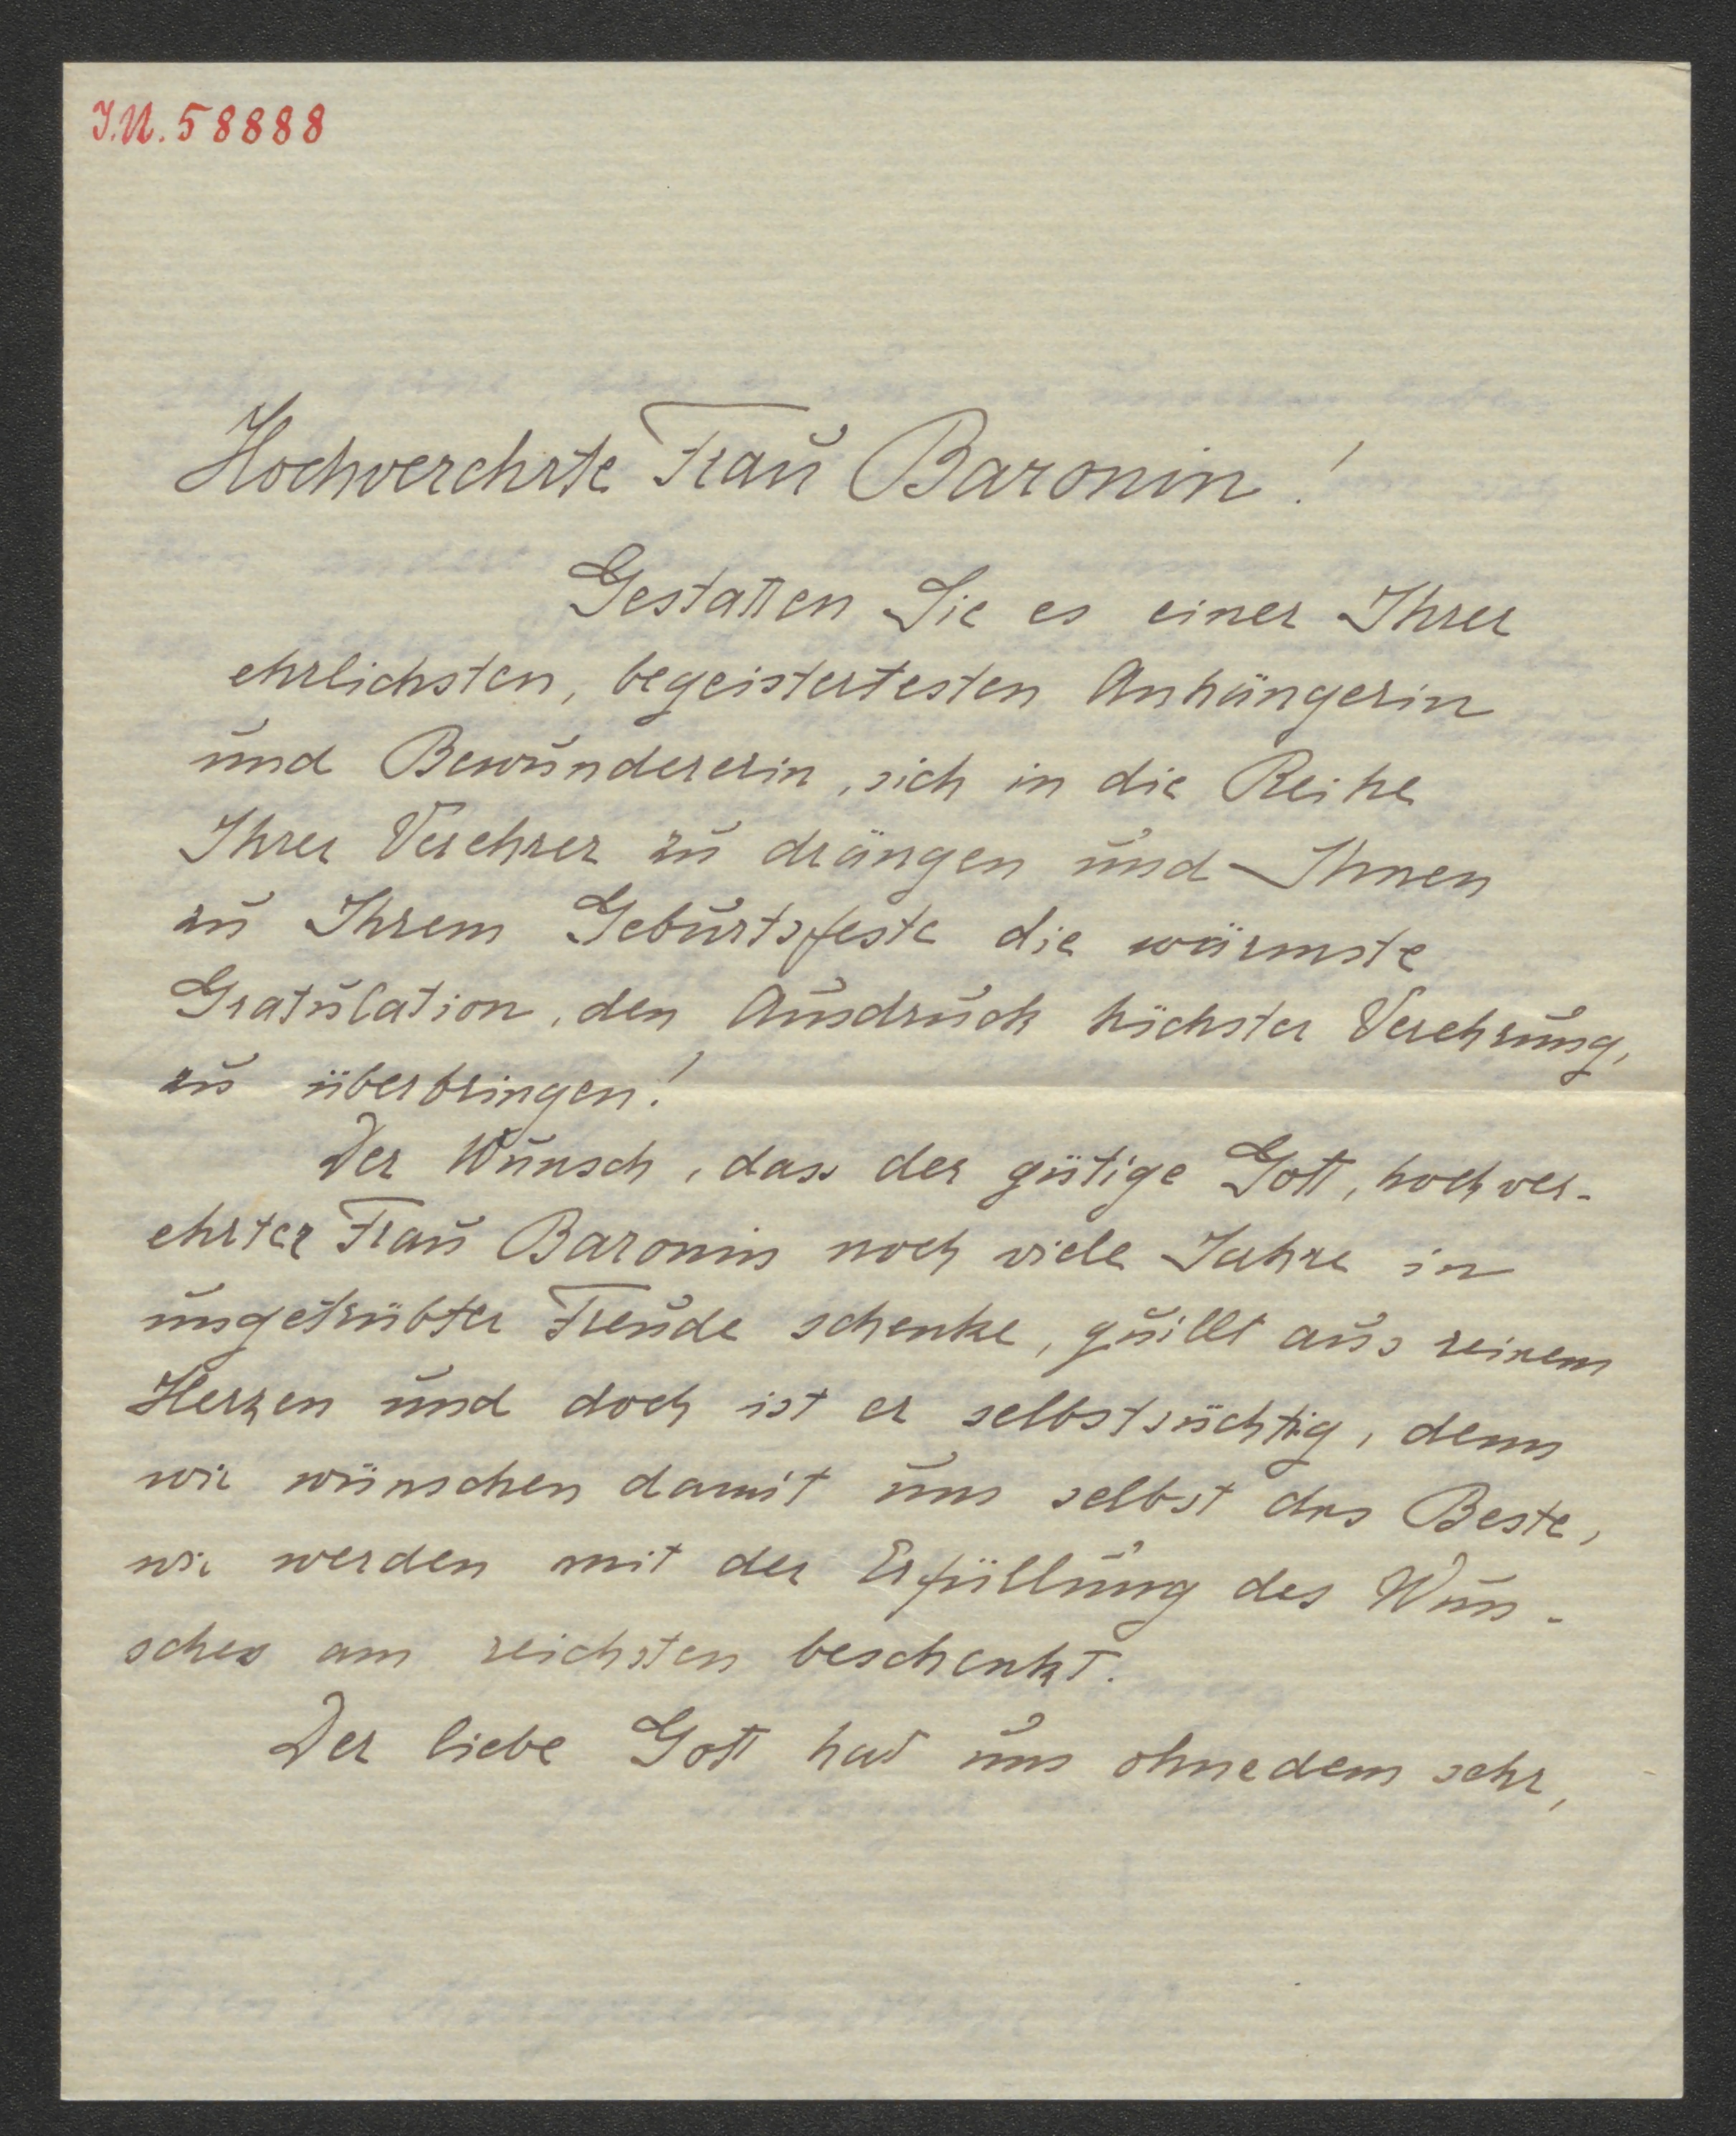 I.N. 58888
Hochverehrte Frau Baronin!
Gestatten Sie es einer Ihrer
ehrlichsten, begeistertesten Anhängerin
und Bewundererin, sich in die Reihe
Ihrer Verehrer zu drängen und Ihnen
zu Ihrem Geburtsfeste die wärmste
Gratulation, den Ausdruck höchster Verehrung,
zu überbringen!
Der Wunsch, dass der gütige Gott, hochver-
ehrter Frau Baronin noch viele Jahre in
ungetrübter Freude schenke, quillt aus reinem
Herzen und doch ist er selbstsüchtig, denn
wir wünschen damit uns selbst das Beste,
wir werden mit der Erfüllung des Wun-
sches am reichsten beschenkt.
Der liebe Gott hat uns ohnedem sehr,